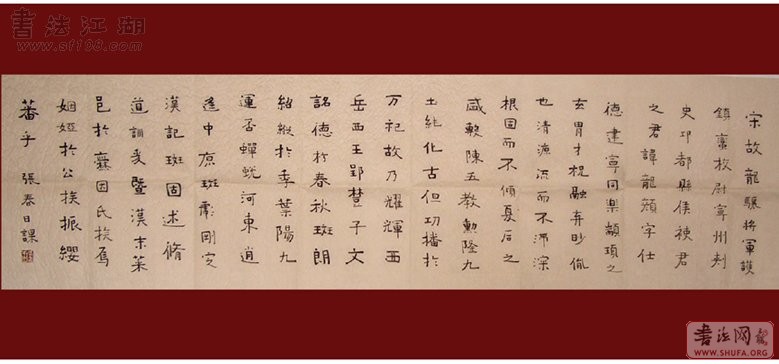 書法江湖
www.sf108.com
宋故龍驤將軍護
鎮蠻校尉寧州刺
史邛都縣侯使君
之君諱龍顏字仕
德建寧同樂顓頊之
玄胄才祝融弃眇胤
也清源流而不滯深
根固而不傾夏后之
盛敷陳五教勳隆九
土純化古但功播於
万祀故乃耀輝西
岳西王郢楚子文
詺德於春秋斑朗
紹縱於季葉陽九
運否蟬蛻河東逍
遙中原斑彪刪定
漢記斑固述脩
道訓爰暨漢末菜
邑於爨因氏族焉
姻婭於公族振纓
蕃乎 張春日課
書法网
WWW.SHUFA.ORG